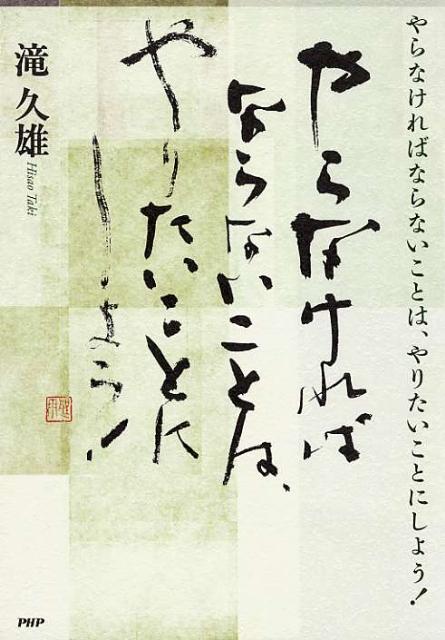 やらなければならないことは、やりたいことにしよう!
やらなければ
ならないことは、
やりたいことに
しよう!
滝 久雄
Hisao Taki
PHP